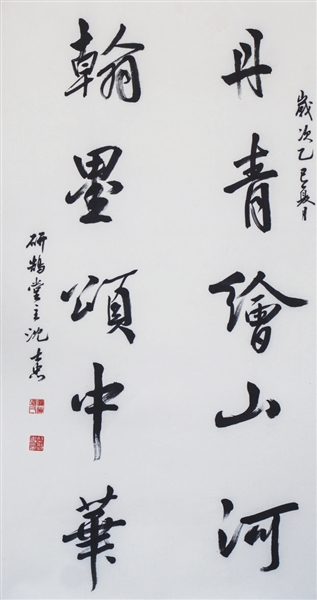 歲次乙巳夏月
丹青繪山河
翰墨頌中華
研鵠堂主沈